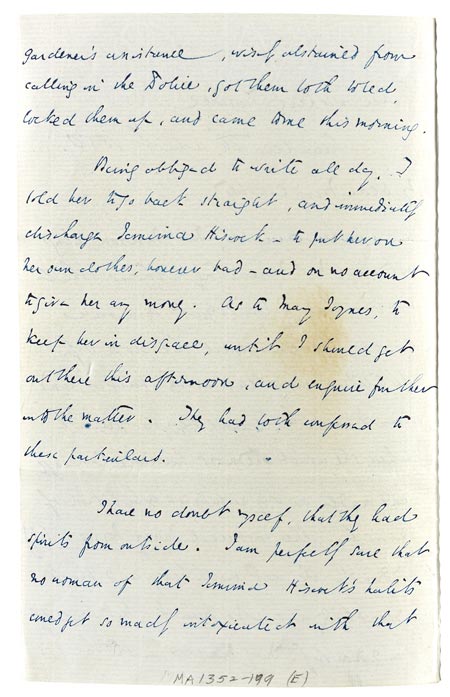 gardener's assistance, wisely abstained from
calling in the Police, got them both to bed,
locked them up, and came to me this morning.
Being obliged to write all day, I
told her to go back straight, and immediately
discharge Jemima Hiscock – to put her on
her own clothes, however bad – and on no account
to give her any money. As to Mary Joynes, to
keep her in disgrace, until I should get
out there this afternoon, and enquire further
into the matter. They had both confessed to
these particulars.
I have no doubt myself, that they had
spirits from outside. I am perfectly sure that
no woman of that Jemima Hiscock's habits
could get so madly intoxicated with that
MA 1352-199 (E)